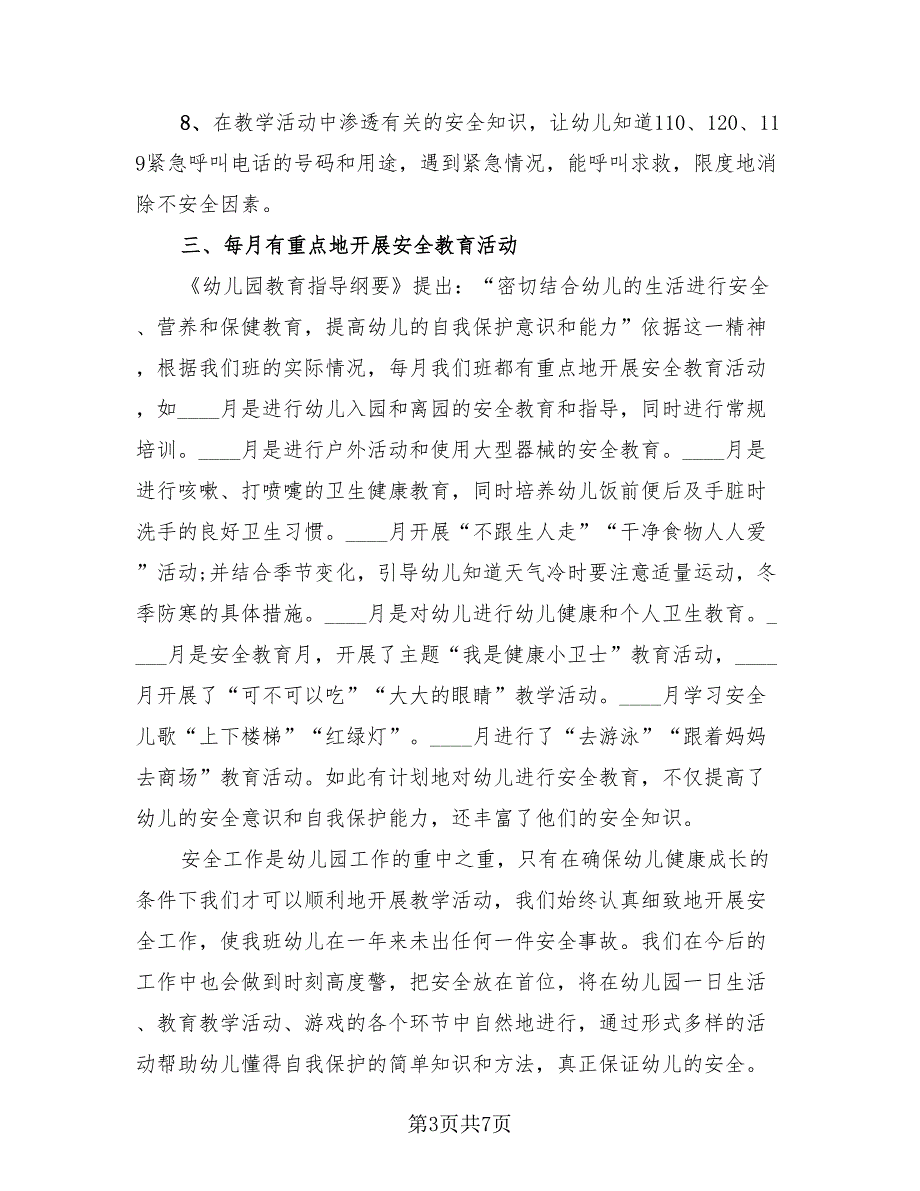 8、在教学活动中渗透有关的安全知识，让幼儿知道110、120、11
9紧急呼叫电话的号码和用途，遇到紧急情况，能呼叫求救，限度地消
除不安全因素。
三、每月有重点地开展安全教育活动
《幼儿园教育指导纲要》提出：“密切结合幼儿的生活进行安全
、营养和保健教育，提高幼儿的自我保护意识和能力”依据这一精神
，根据我们班的实际情况，每月我们班都有重点地开展安全教育活动
，如____月是进行幼儿入园和离园的安全教育和指导，同时进行常规
培训。____月是进行户外活动和使用大型器械的安全教育。____月是
进行咳嗽、打喷嚏的卫生健康教育，同时培养幼儿饭前便后及手脏时
洗手的良好卫生习惯。____月开展“不跟生人走”“干净食物人人爱
”活动;并结合季节变化，引导幼儿知道天气冷时要注意适量运动，冬
季防寒的具体措施。____月是对幼儿进行幼儿健康和个人卫生教育。_
___月是安全教育月，开展了主题“我是健康小卫士”教育活动，____
月开展了“可不可以吃”“大大的眼睛”教学活动。____月学习安全
儿歌“上下楼梯”“红绿灯”。____月进行了“去游泳”“跟着妈妈
去商场”教育活动。如此有计划地对幼儿进行安全教育，不仅提高了
幼儿的安全意识和自我保护能力，还丰富了他们的安全知识。
安全工作是幼儿园工作的重中之重，只有在确保幼儿健康成长的
条件下我们才可以顺利地开展教学活动，我们始终认真细致地开展安
全工作，使我班幼儿在一年来未出任何一件安全事故。我们在今后的
工作中也会做到时刻高度警，把安全放在首位，将在幼儿园一日生活
、教育教学活动、游戏的各个环节中自然地进行，通过形式多样的活
动帮助幼儿懂得自我保护的简单知识和方法，真正保证幼儿的安全。
第3页共7页